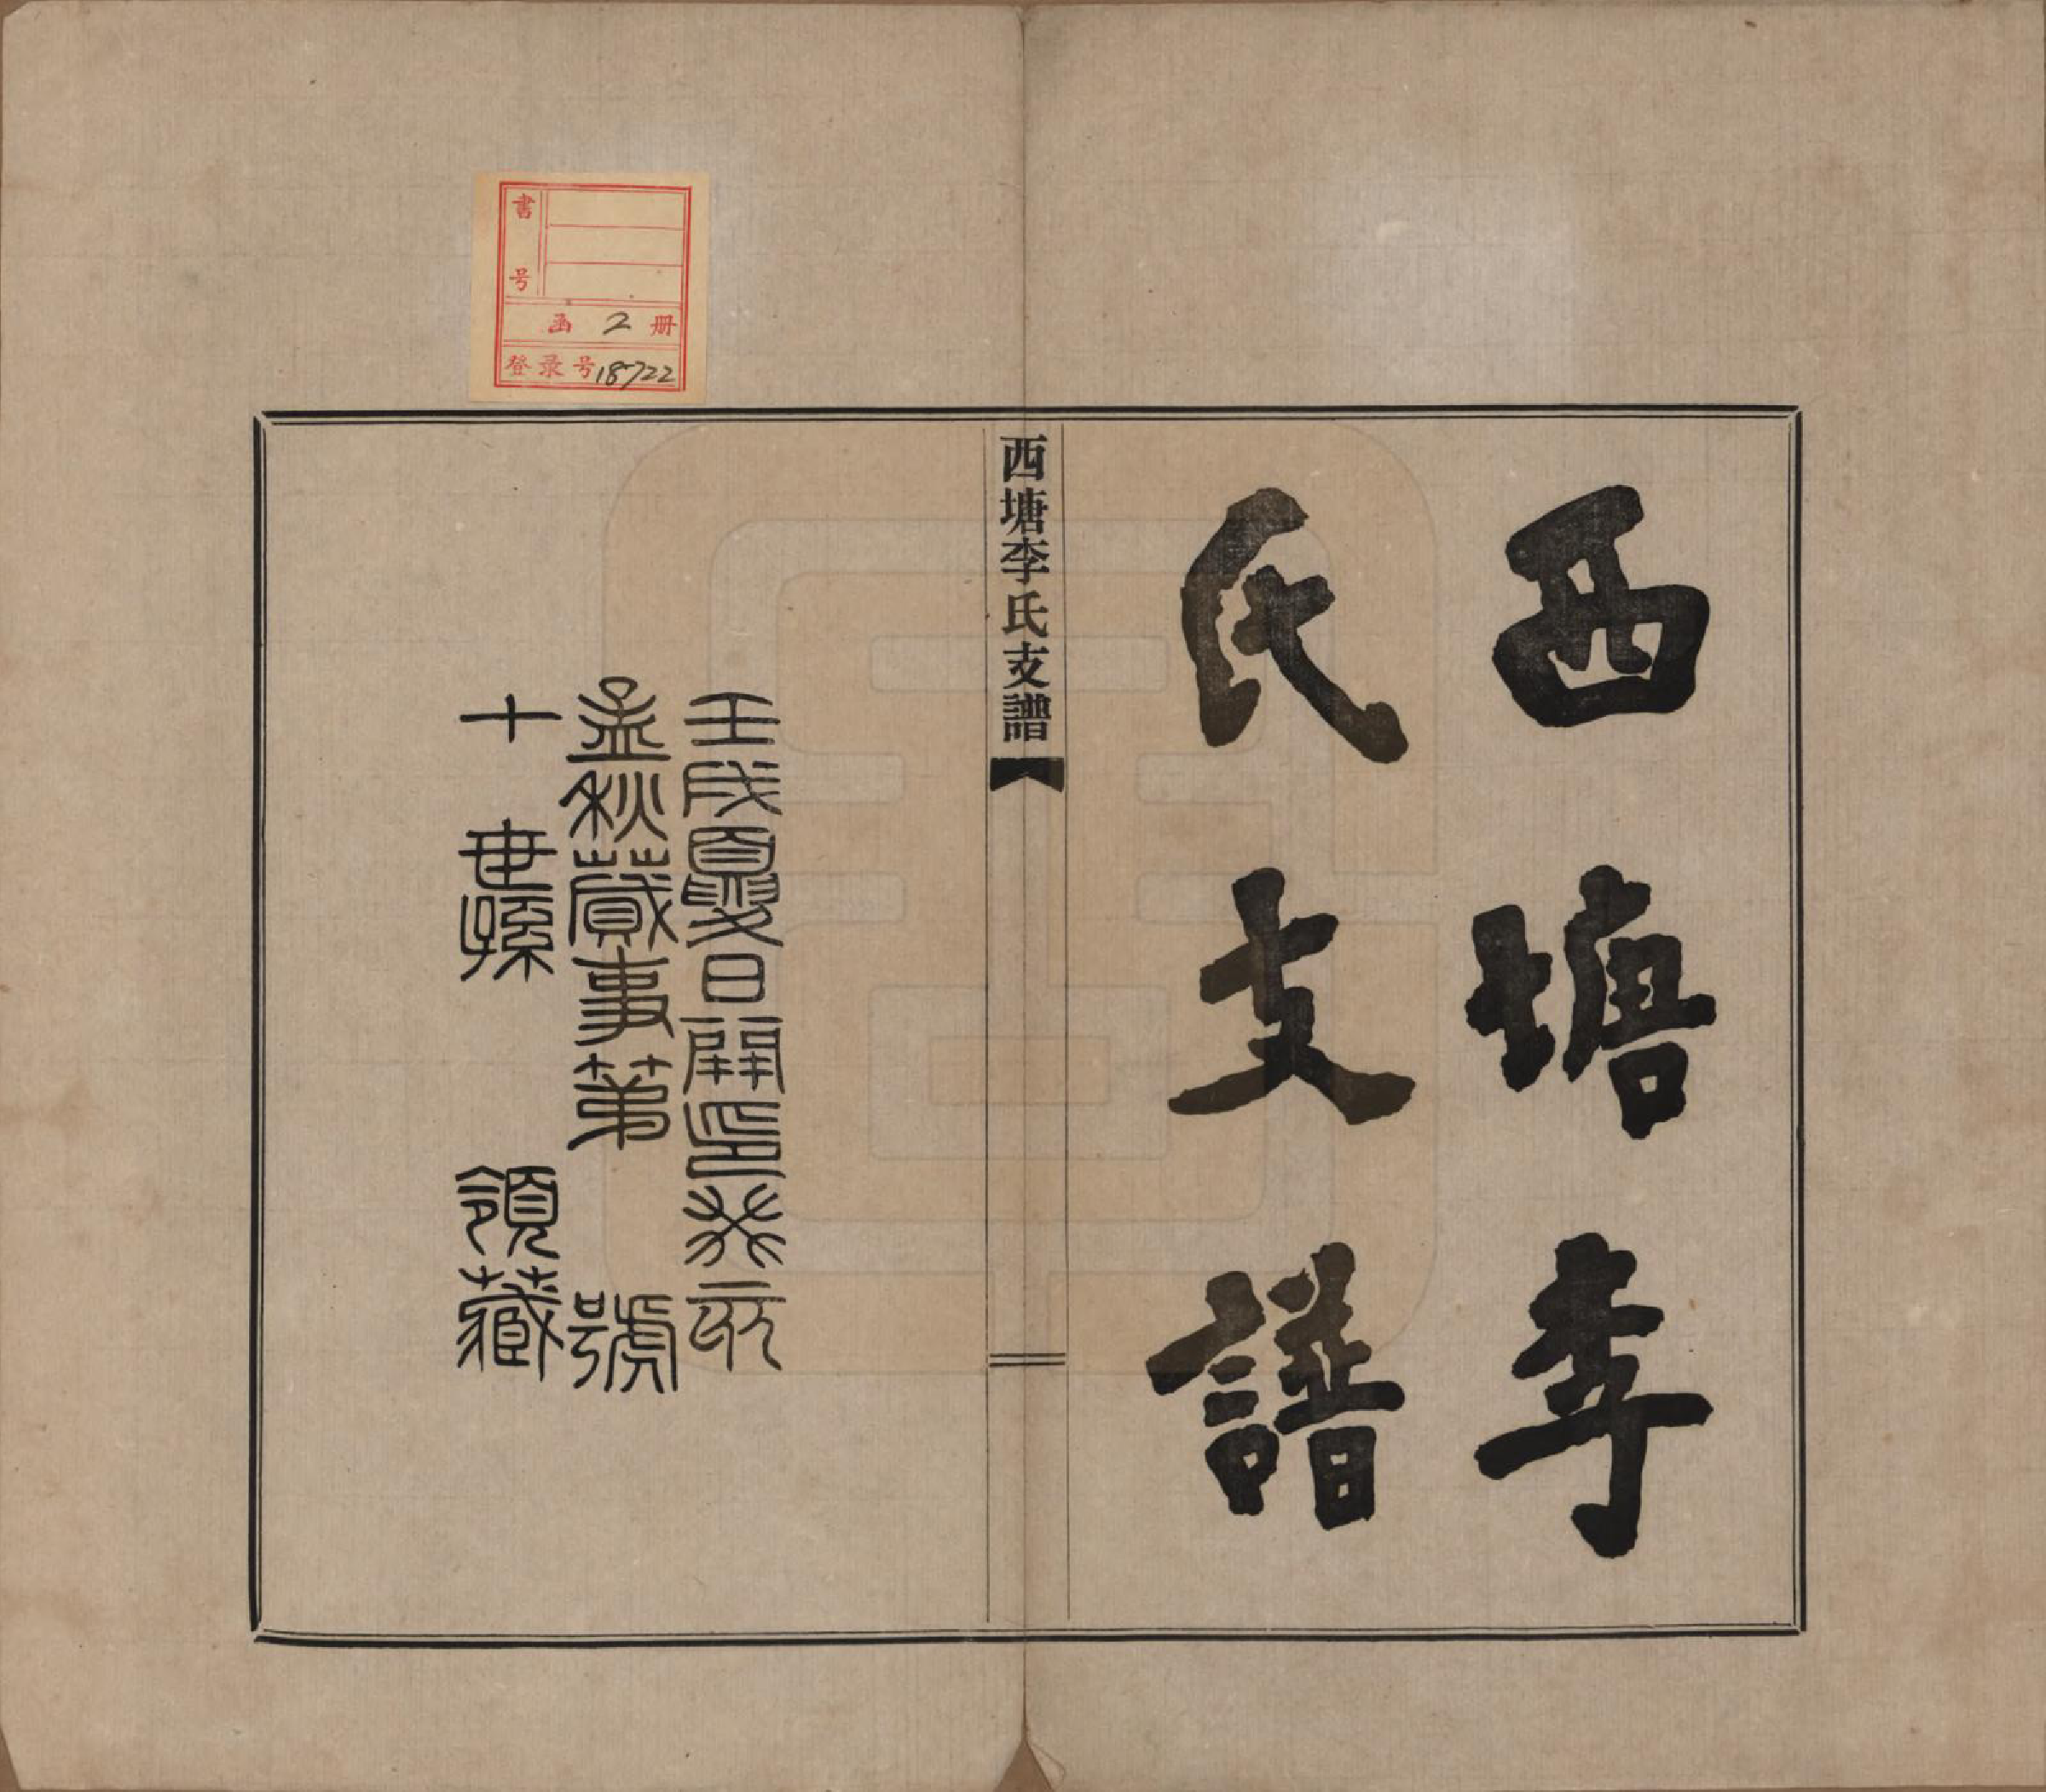 西塘李
氏支譜
西塘李氏支譜
壬戌夏日開印癸亥
孟秋蕆事第 號
十 世孫 領藏
書号
函 2 册
登录号 18722